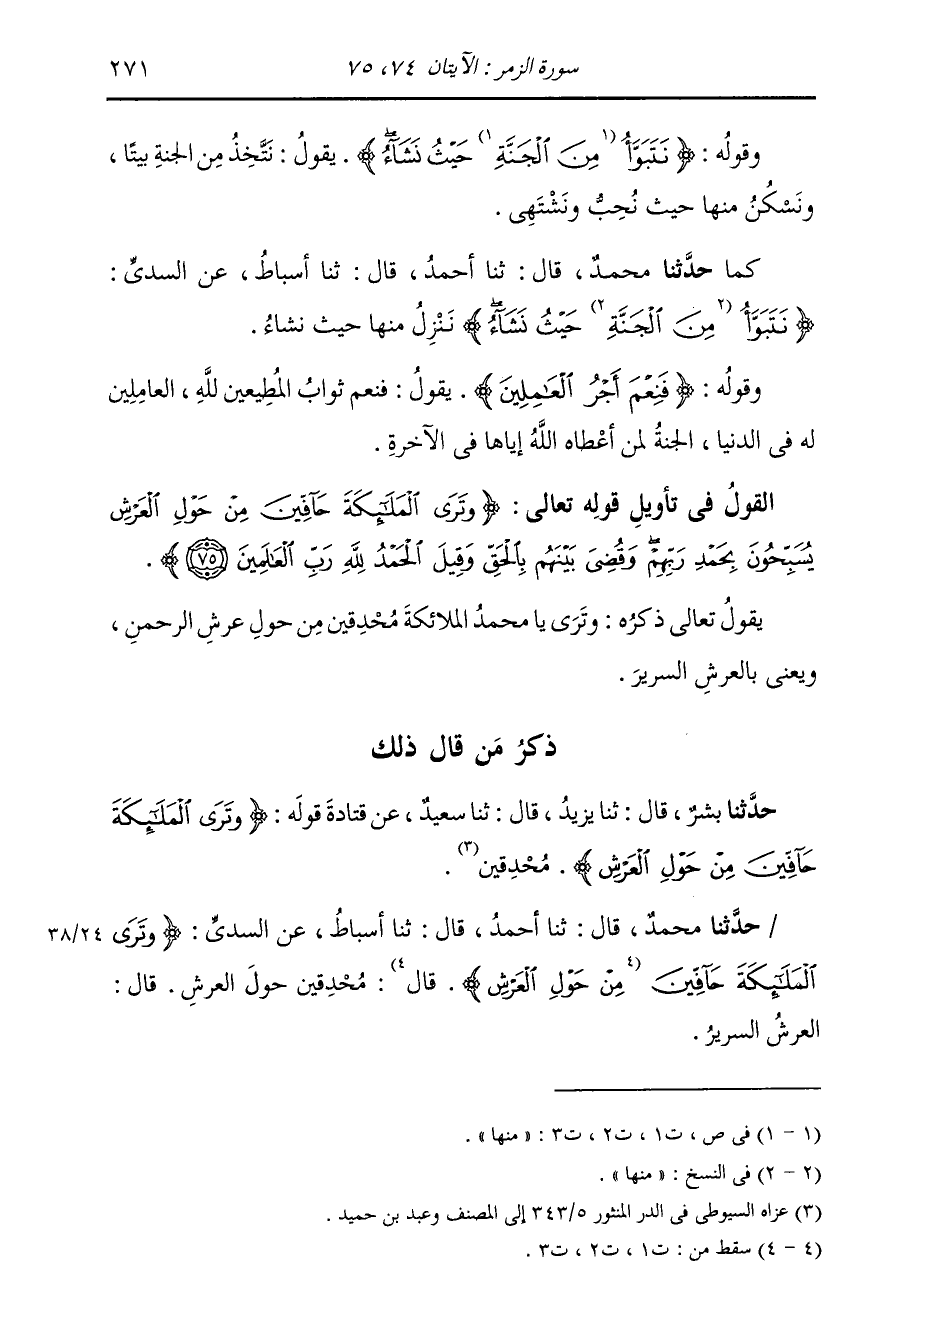 سورة الزمر : الآيتان ٧٤، ٧٥ ٢٧١
وقولُه : ﴿ نَتَبَوَّأُ ⁽¹ مِنَ ٱلْجَنَّةِ ¹⁾ حَيْثُ نَشَآءُۖ ﴾ . يقولُ : نَتَّخِذُ مِن الجنةِ بيتًا ،
ونَسْكُنُ منها حيث نُحِبُّ ونَشْتَهِى .
كما حدَّثنا محمدٌ ، قال : ثنا أحمدُ ، قال : ثنا أسباطُ ، عن السدىِّ :
﴿ نَتَبَوَّأُ ⁽² مِنَ ٱلْجَنَّةِ ²⁾ حَيْثُ نَشَآءُۖ ﴾ نَنْزِلُ منها حيث نشاءُ .
وقولُه : ﴿ فَنِعْمَ أَجْرُ ٱلْعَـٰمِلِينَ ﴾ . يقولُ : فنعم ثوابُ المُطِيعين للَّهِ ، العامِلِين
له فى الدنيا ، الجنةُ لمن أعْطاه اللَّهُ إياها فى الآخرةِ .
القولُ فى تأويلِ قولِه تعالى : ﴿ وَتَرَى ٱلْمَلَـٰٓئِكَةَ حَآفِّينَ مِنْ حَوْلِ ٱلْعَرْشِ
يُسَبِّحُونَ بِحَمْدِ رَبِّهِمْۖ وَقُضِىَ بَيْنَهُم بِٱلْحَقِّ وَقِيلَ ٱلْحَمْدُ لِلَّهِ رَبِّ ٱلْعَـٰلَمِينَ ٧٥ ﴾ .
يقولُ تعالى ذكرُه : وتَرَى يا محمدُ الملائكةَ مُحْدِقين مِن حولِ عرشِ الرحمنِ ،
ويعنى بالعرشِ السريرَ .
ذكرُ مَن قال ذلك
حدَّثنا بشرٌ ، قال : ثنا يزيدُ ، قال : ثنا سعيدٌ ، عن قتادةَ قولَه : ﴿ وَتَرَى ٱلْمَلَـٰٓئِكَةَ
حَآفِّينَ مِنْ حَوْلِ ٱلْعَرْشِ ﴾ . مُحْدِقين (٣) .
/ حدَّثنا محمدٌ ، قال : ثنا أحمدُ ، قال : ثنا أسباطُ ، عن السدىِّ : ﴿ وَتَرَى ٣٨/٢٤
ٱلْمَلَـٰٓئِكَةَ حَآفِّينَ (٤ مِنْ حَوْلِ ٱلْعَرْشِ ﴾ . قال ٤) : مُحْدِقين حولَ العرشِ . قال :
العرشُ السريرُ .
(١ - ١) فى ص ، ت١ ، ت٢ ، ت٣ : « منها » .
(٢ - ٢) فى النسخ : « منها » .
(٣) عزاه السيوطى فى الدر المنثور ٣٤٣/٥ إلى المصنف وعبد بن حميد .
(٤ - ٤) سقط من : ت١ ، ت٢ ، ت٣ .